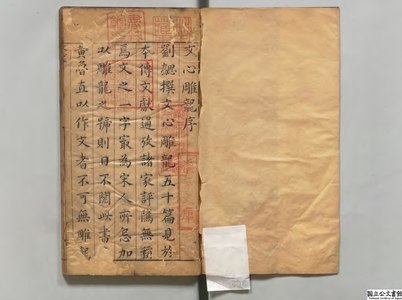 文心雕龍序
劉勰撰文心雕龍五十篇見於
本傳文獻通攷諸家評隲無預
爲文之一字㝡為宋人所忽加
以雕龍之號則目不閱此書
黄魯直以作文者不可無雕龍
國立公文書館